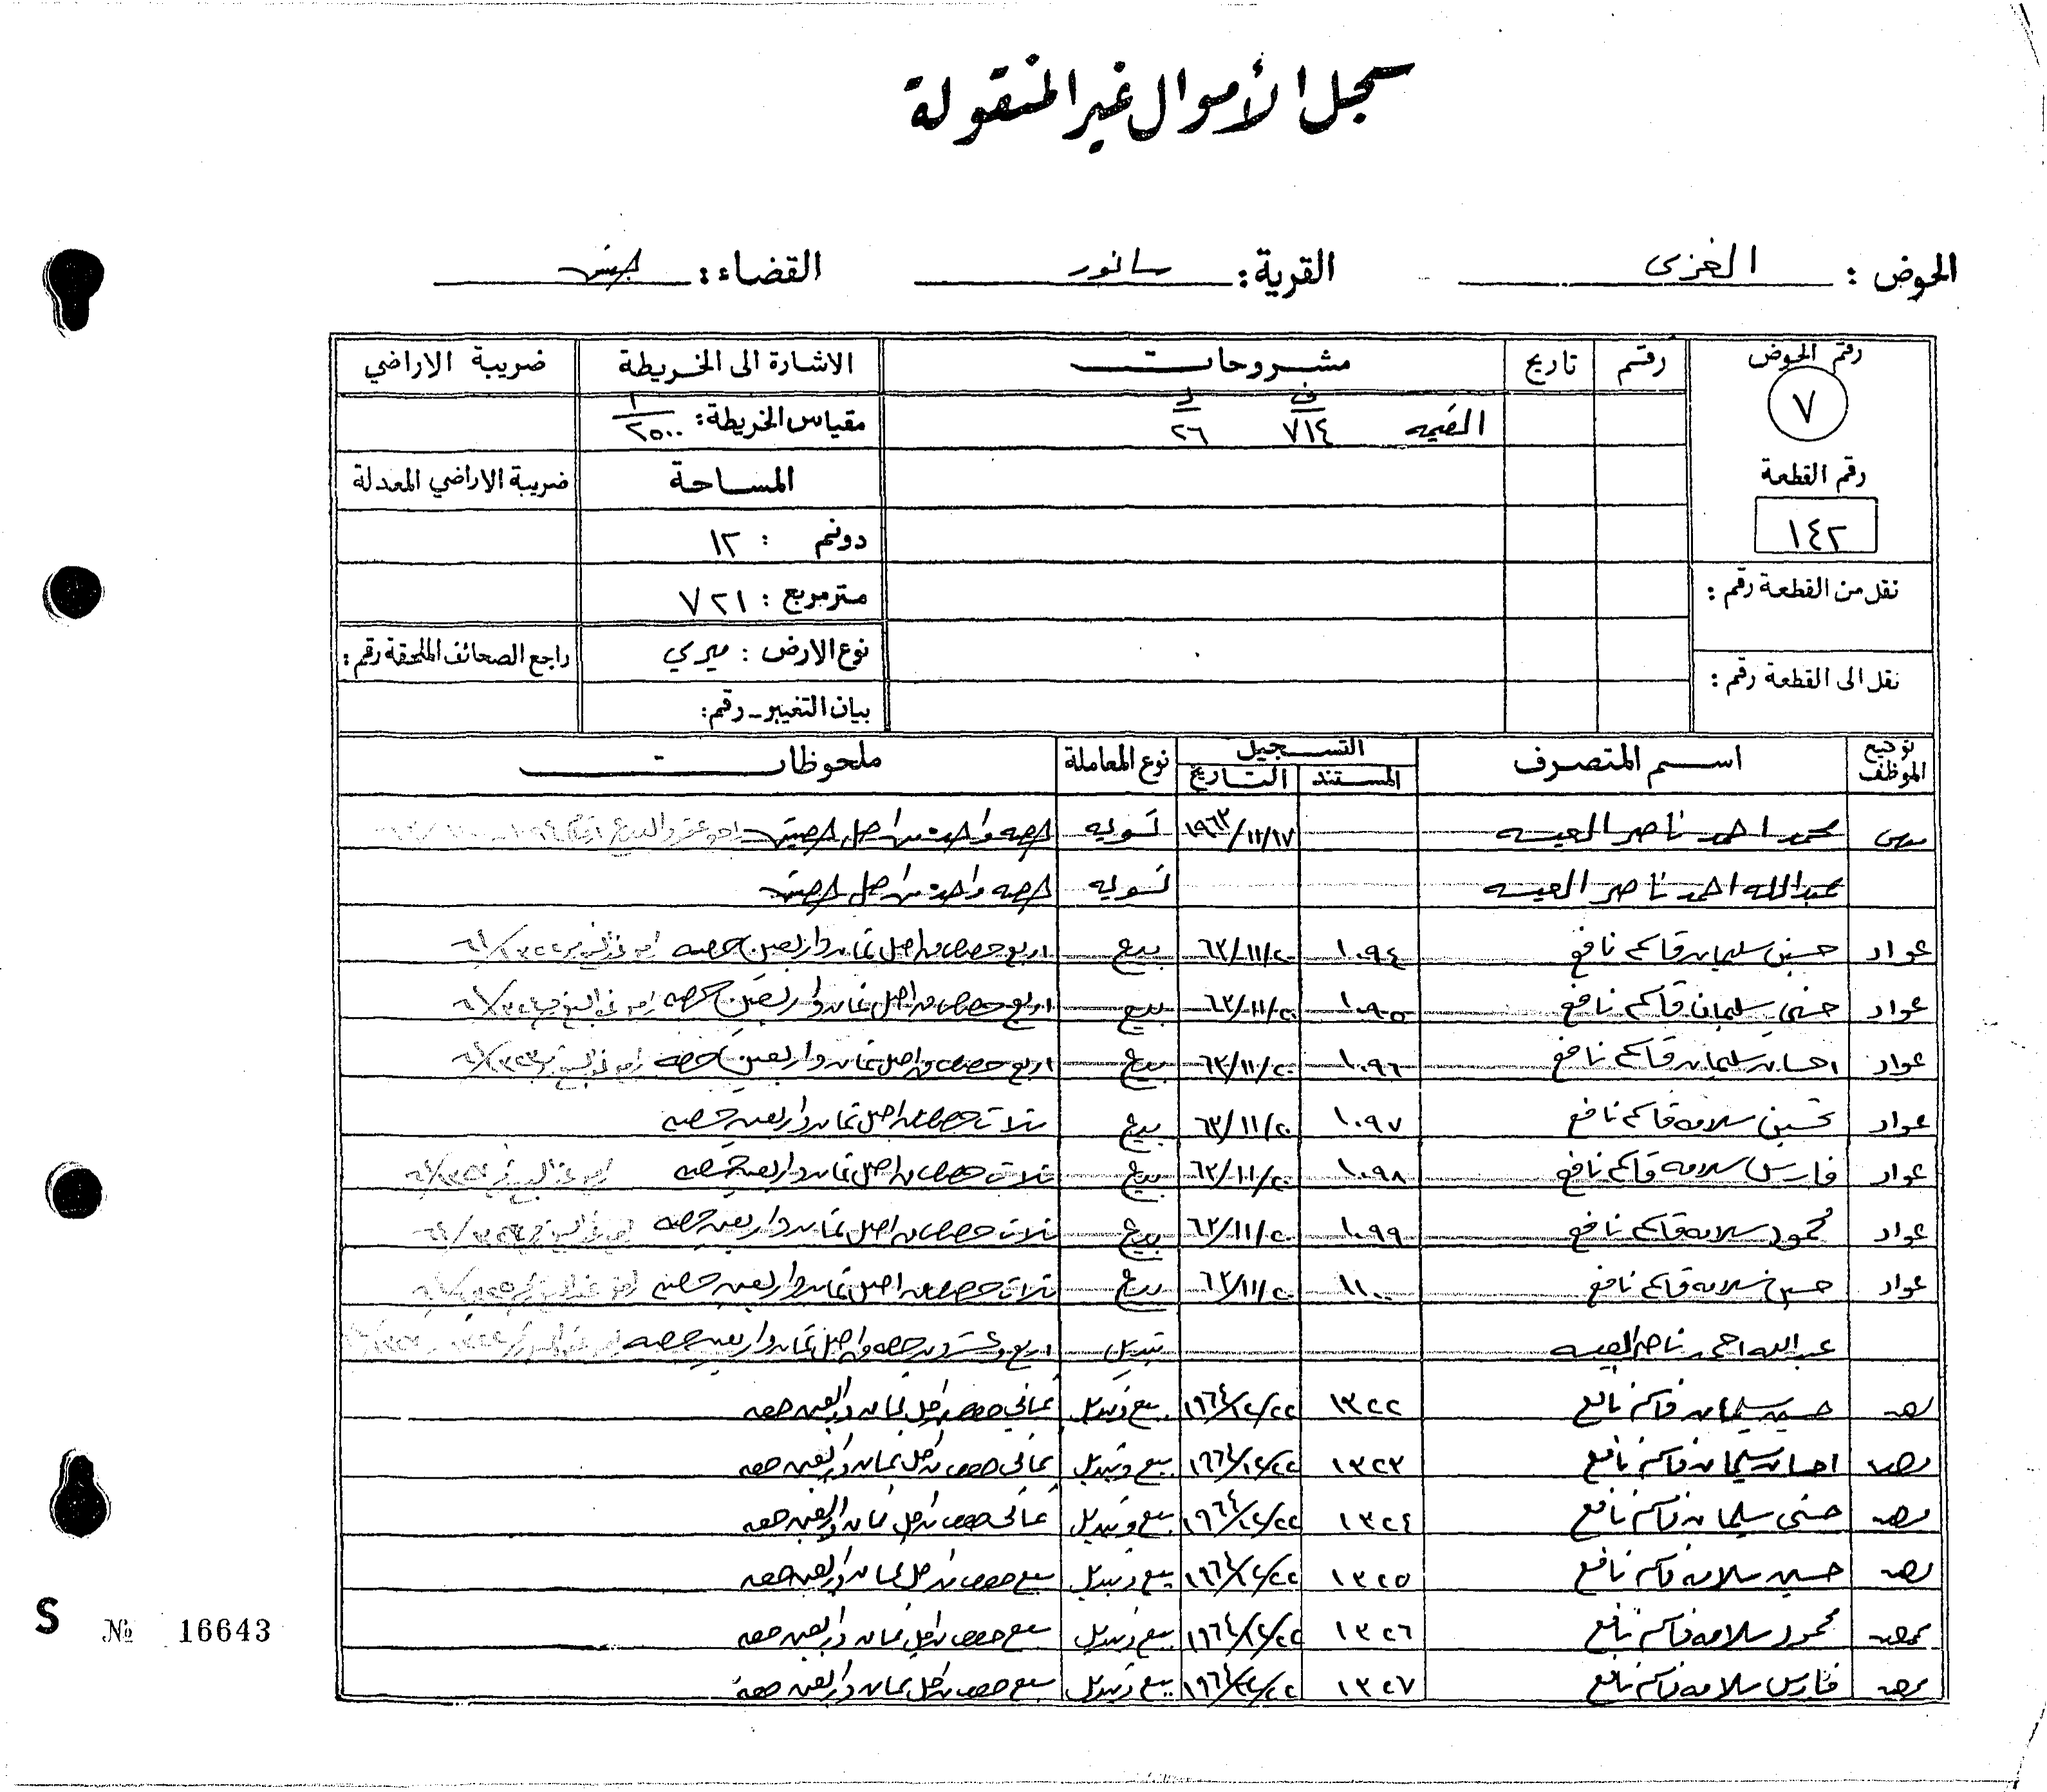 سجل الأموال غير المنقولة
الحوض : الغزى القرية : سانور القضاء : جنين
رقم الحوض رقم تاريخ مشروحات الاشارة الى الخريطة ضريبة الاراضي
٧ ف د
القيمه ٧١٤ ٢٦ مقياس الخريطة : ١/٢٥٠٠
رقم القطعة المساحة ضريبة الاراضي المعدلة
١٤٢ دونم : ١٢
نقل من القطعة رقم : متر مربع : ٧٢١
نوع الارض : ميري راجع الصحائف الملحقة رقم :
نقل الى القطعة رقم : بيان التغيير - رقم :
توقيع الموظف اسم المتصرف التسجيل نوع المعاملة ملحوظات
المستند التاريخ
محمد احمد ناصر العيسه ١٩٦٣/١١/١٧ تسويه حصه واحده من اصل حصتين
عبدالله احمد ناصر العيسه تسويه حصه واحده من اصل حصتين
عواد حسين سليمان قاسم نافع ١٠٩٤ ٦٣/١١/٢٠ بيع اربع حصص من اصل ثمان واربعين حصه
عواد حسني سليمان قاسم نافع ١٠٩٥ ٦٣/١١/٢٠ بيع اربع حصص من اصل ثمان واربعين حصه
عواد احسان سليمان قاسم نافع ١٠٩٦ ٦٣/١١/٢٠ بيع اربع حصص من اصل ثمان واربعين حصه
عواد تحسين سلامه قاسم نافع ١٠٩٧ ٦٣/١١/٢٠ بيع ثلاث حصص من اصل ثمان واربعين حصه
عواد فارس سلامه قاسم نافع ١٠٩٨ ٦٣/١١/٢٠ بيع ثلاث حصص من اصل ثمان واربعين حصه
عواد محمود سلامه قاسم نافع ١٠٩٩ ٦٣/١١/٢٠ بيع ثلاث حصص من اصل ثمان واربعين حصه
عواد حسين سلامه قاسم نافع ١١٠٠ ٦٣/١١/٢٠ بيع ثلاث حصص من اصل ثمان واربعين حصه
عبدالله احمد ناصر العيسه تبديل اربع وعشرون حصه من اصل ثمان واربعين حصه
حسين سليمان قاسم نافع ١٣٢٢ ١٩٦٤/١٢/٢٢ بيع وتبديل ثماني حصص من اصل ثمان واربعين حصه
احسان سليمان قاسم نافع ١٣٢٣ ١٩٦٤/١٢/٢٢ بيع وتبديل ثماني حصص من اصل ثمان واربعين حصه
حسني سليمان قاسم نافع ١٣٢٤ ١٩٦٤/١٢/٢٢ بيع وتبديل ثماني حصص من اصل ثمان واربعين حصه
حسين سلامه قاسم نافع ١٣٢٥ ١٩٦٤/١٢/٢٢ بيع وتبديل سبع حصص من اصل ثمان واربعين حصه
محمود سلامه قاسم نافع ١٣٢٦ ١٩٦٤/١٢/٢٢ بيع وتبديل سبع حصص من اصل ثمان واربعين حصه
فارس سلامه قاسم نافع ١٣٢٧ ١٩٦٤/١٢/٢٢ بيع وتبديل سبع حصص من اصل ثمان واربعين حصه
S № 16643